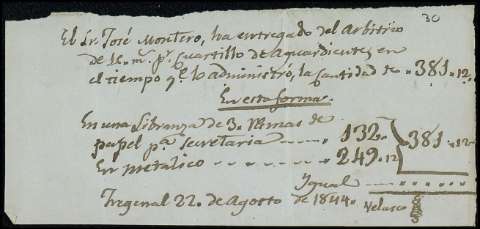 30
El Sr. José Montero, ha entregado del Arbitrio
de 12. m. pr. Cuartillo de Aguardiente, en
el tiempo q.e lo administró, la Cantidad de " 381,12.
En esta forma.
En una Libranza de 3. Rimas de
papel p.a Secretaria 132. 381,12
En metálico 249.12
Igual
Fregenal 22. de Agosto de 1844. Velasco